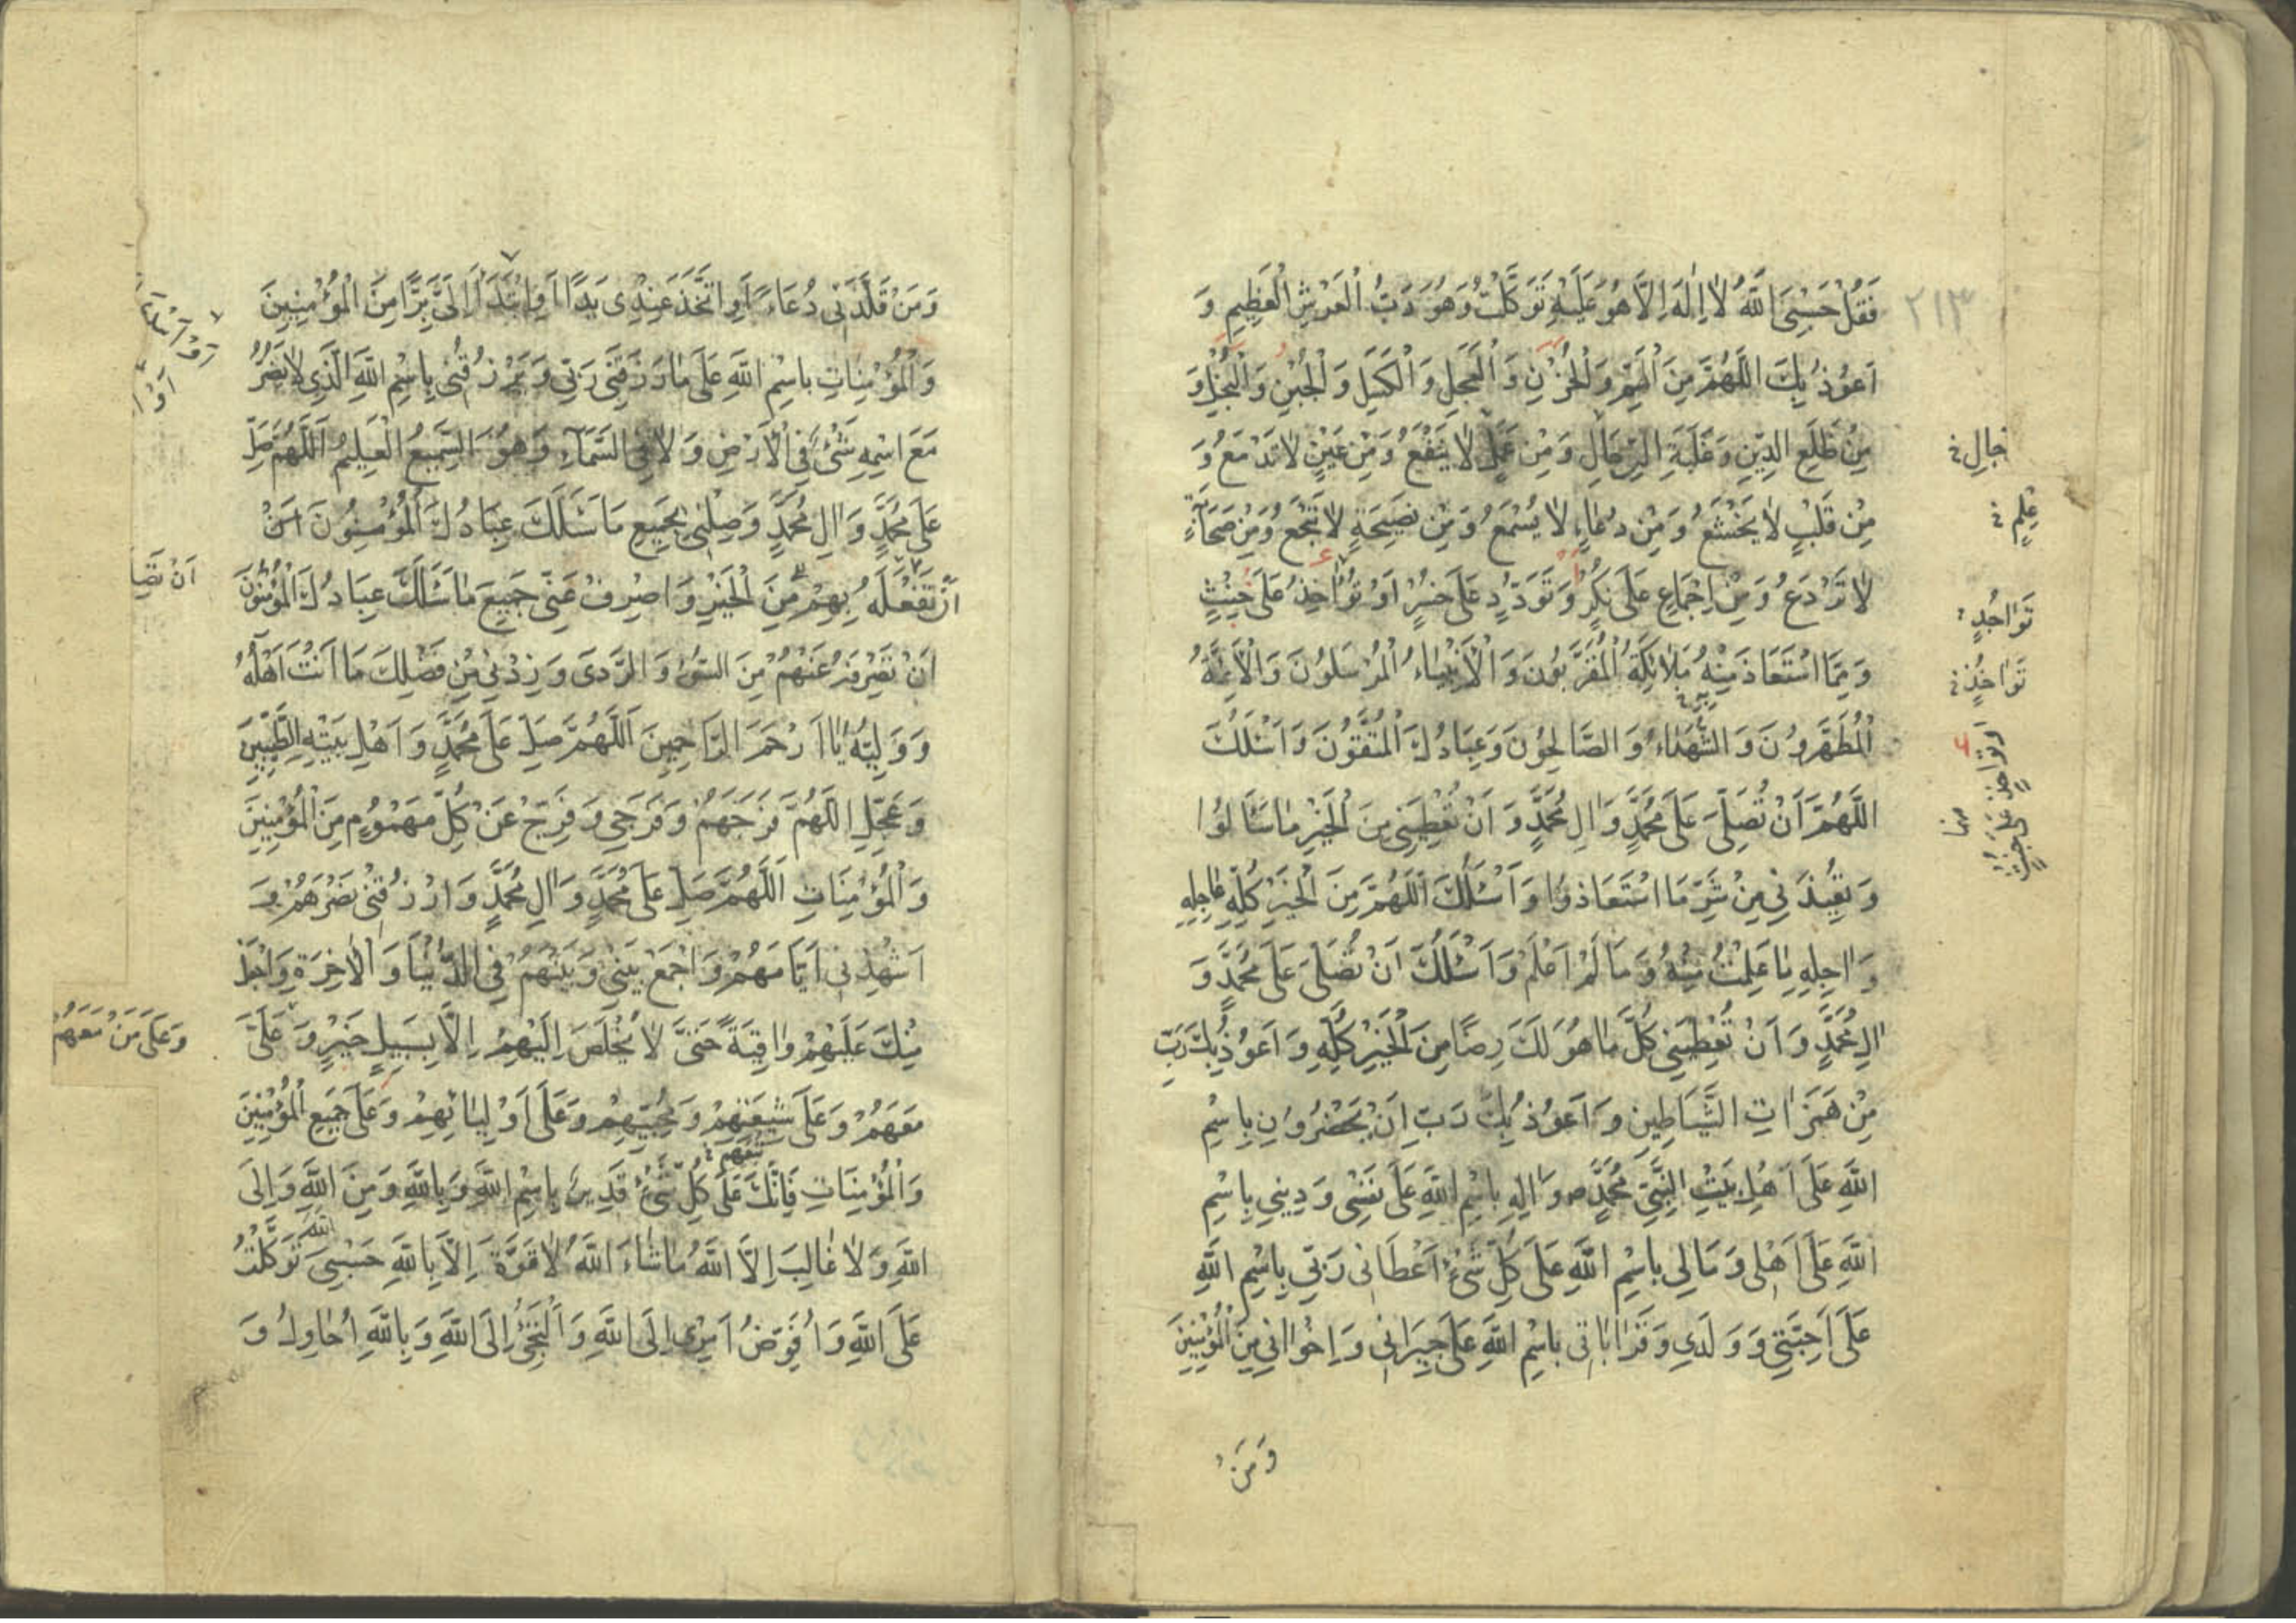 ٢١٣
فَقُلْ حَسْبِيَ اللّٰهُ لَا اِلٰهَ اِلَّا هُوَ عَلَيْهِ تَوَكَّلْتُ وَهُوَ رَبُّ الْعَرْشِ الْعَظِيمِ وَ
اَعُوذُ بِكَ اللّٰهُمَّ مِنَ الْهَمِّ وَالْحُزْنِ وَالْعَجْلِ وَالْكَسَلِ وَالْجُبْنِ وَالْبُخْلِ وَ
مِنْ ظَلَعِ الدِّينِ وَغَلَبَةِ الرِّجَالِ وَمِنْ عَمَلٍ لَا يَنْفَعُ وَمِنْ عَيْنٍ لَا تَدْمَعُ وَ
مِنْ قَلْبٍ لَا يَخْشَعُ وَمِنْ دُعَاءٍ لَا يُسْمَعُ وَمِنْ نَصِيحَةٍ لَا تَنْجَعُ وَمِنْ صَحَابَةٍ
لَا تَرْدَعُ وَمِنْ اِجْمَاعٍ عَلَى نُكُرٍ وَتَوَدُّدٍ عَلَى خُسْرٍ اَوْ تَوَاخُذٍ عَلَى خُبْثٍ
وَمِمَّا اسْتَعَاذَ مِنْهُ مَلَائِكَةُ الْمُقَرَّبُونَ وَالْاَنْبِيَاءُ الْمُرْسَلُونَ وَالْاَئِمَّةُ
الْمُطَهَّرُونَ وَالشُّهَدَاءُ وَالصَّالِحُونَ وَعِبَادُكَ الْمُتَّقُونَ وَاَسْئَلُكَ
اللّٰهُمَّ اَنْ تُصَلِّيَ عَلَى مُحَمَّدٍ وَاٰلِ مُحَمَّدٍ وَاَنْ تُعْطِيَنِي مِنَ الْخَيْرِ مَا سَاَلُوا
وَتُعِيذَنِي مِنْ شَرِّ مَا اسْتَعَاذُوا وَاَسْئَلُكَ اللّٰهُمَّ مِنَ الْخَيْرِ كُلِّهِ عَاجِلِهِ
وَاٰجِلِهِ مَا عَلِمْتُ مِنْهُ وَمَا لَمْ اَعْلَمْ وَاَسْئَلُكَ اَنْ تُصَلِّيَ عَلَى مُحَمَّدٍ وَ
اٰلِ مُحَمَّدٍ وَاَنْ تُعْطِيَنِي كُلَّ مَا هُوَ لَكَ رِضًا مِنَ الْخَيْرِ كُلِّهِ وَاَعُوذُ بِكَ رَبِّ
مِنْ هَمَزَاتِ الشَّيَاطِينِ وَاَعُوذُ بِكَ رَبِّ اَنْ يَحْضُرُونِ بِاسْمِ
اللّٰهِ عَلَى اَهْلِ بَيْتِ النَّبِيِّ مُحَمَّدٍ ص وَاٰلِهِ بِاسْمِ اللّٰهِ عَلَى نَفْسِي وَدِينِي بِاسْمِ
اللّٰهِ عَلَى اَهْلِي وَمَالِي بِاسْمِ اللّٰهِ عَلَى كُلِّ شَيْءٍ اَعْطَانِي رَبِّي بِاسْمِ اللّٰهِ
عَلَى اَحِبَّتِي وَوَلَدِي وَقَرَابَاتِي بِاسْمِ اللّٰهِ عَلَى جِيرَانِي وَاِخْوَانِي مِنَ الْمُؤْمِنِينَ
وَمَنْ
جَالِ
عِلْمٍ
تَوَاخُذٍ
وَمَنْ قَلَّدَنِي دُعَاءً اَوِ اتَّخَذَ عِنْدِي يَدًا اَوِ ابْتَدَاَ اِلَيَّ بِرًّا مِنَ الْمُؤْمِنِينَ
وَالْمُؤْمِنَاتِ بِاسْمِ اللّٰهِ عَلَى مَا رَزَقَنِي رَبِّي وَيَرْزُقُنِي بِاسْمِ اللّٰهِ الَّذِي لَا يَضُرُّ
مَعَ اسْمِهِ شَيْءٌ فِي الْاَرْضِ وَلَا فِي السَّمَاءِ وَهُوَ السَّمِيعُ الْعَلِيمُ اَللّٰهُمَّ صَلِّ
عَلَى مُحَمَّدٍ وَاٰلِ مُحَمَّدٍ وَصِلْنِي بِجَمِيعِ مَا سَئَلَكَ عِبَادُكَ الْمُؤْمِنُونَ اَنْ
تَفْعَلَهُ بِهِمْ مِنَ الْخَيْرِ وَاصْرِفْ عَنِّي جَمِيعَ مَا سَئَلَكَ عِبَادُكَ الْمُؤْمِنُونَ
اَنْ تَصْرِفَهُ عَنْهُمْ مِنَ السُّوءِ وَالرَّدَى وَزِدْنِي مِنْ فَضْلِكَ مَا اَنْتَ اَهْلُهُ
وَوَلِيُّهُ يَا اَرْحَمَ الرَّاحِمِينَ اَللّٰهُمَّ صَلِّ عَلَى مُحَمَّدٍ وَاَهْلِ بَيْتِهِ الطَّيِّبِينَ
وَعَجِّلِ اللّٰهُمَّ فَرَجَهُمْ وَفَرَجِي وَفَرِّجْ عَنْ كُلِّ مَهْمُومٍ مِنَ الْمُؤْمِنِينَ
وَالْمُؤْمِنَاتِ اَللّٰهُمَّ صَلِّ عَلَى مُحَمَّدٍ وَاٰلِ مُحَمَّدٍ وَارْزُقْنِي نَصْرَهُمْ وَ
اَشْهِدْنِي اَيَّامَهُمْ وَاجْمَعْ بَيْنِي وَبَيْنَهُمْ فِي الدُّنْيَا وَالْاٰخِرَةِ وَاجْعَلْ
مِنْكَ عَلَيْهِمْ وَاقِيَةً حَتَّى لَا يُخْلَصَ اِلَيْهِمْ اِلَّا بِسَبِيلِ خَيْرٍ وَعَلَيَّ
مَعَهُمْ وَعَلَى شِيعَتِهِمْ وَمُحِبِّيهِمْ وَعَلَى اَوْلِيَائِهِمْ وَعَلَى جَمِيعِ الْمُؤْمِنِينَ
وَالْمُؤْمِنَاتِ فَاِنَّكَ عَلَى كُلِّ شَيْءٍ قَدِيرٌ بِاسْمِ اللّٰهِ وَبِاللّٰهِ وَمِنَ اللّٰهِ وَاِلَى
اللّٰهِ وَلَا غَالِبَ اِلَّا اللّٰهُ مَا شَاءَ اللّٰهُ لَا قُوَّةَ اِلَّا بِاللّٰهِ حَسْبِيَ اللّٰهُ تَوَكَّلْتُ
عَلَى اللّٰهِ وَاُفَوِّضُ اَمْرِي اِلَى اللّٰهِ وَاَلْتَجِئُ اِلَى اللّٰهِ وَبِاللّٰهِ اُحَاوِلُ وَ
وَعَلَى مَنْ مَعَهُمْ